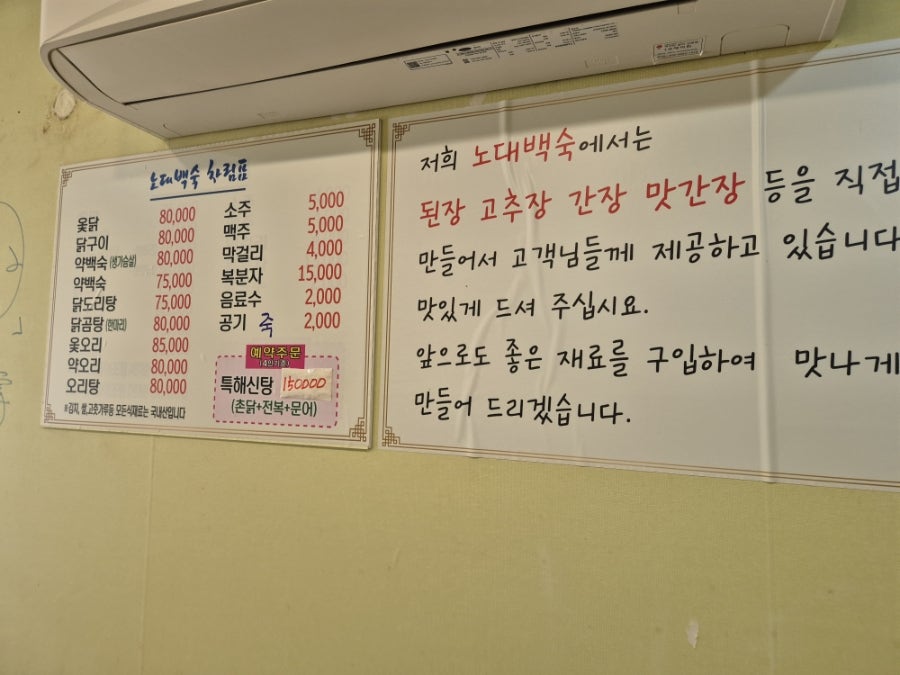 노대백숙 차림표
옻닭 80,000
닭구이 80,000
약백숙(생기승삼) 80,000
약백숙 75,000
닭도리탕 75,000
닭곰탕(한마리) 80,000
옻오리 85,000
약오리 80,000
오리탕 80,000
소주 5,000
맥주 5,000
막걸리 4,000
복분자 15,000
음료수 2,000
공기 죽 2,000
예약주문
(4인기준)
특해신탕 150000
(촌닭+전복+문어)
※김치, 쌀,고춧가루등 모든식재료는 국내산입니다
저희 노대백숙에서는
된장 고추장 간장 맛간장 등을 직접
만들어서 고객님들께 제공하고 있습니다
맛있게 드셔 주십시요.
앞으로도 좋은 재료를 구입하여 맛나게
만들어 드리겠습니다.